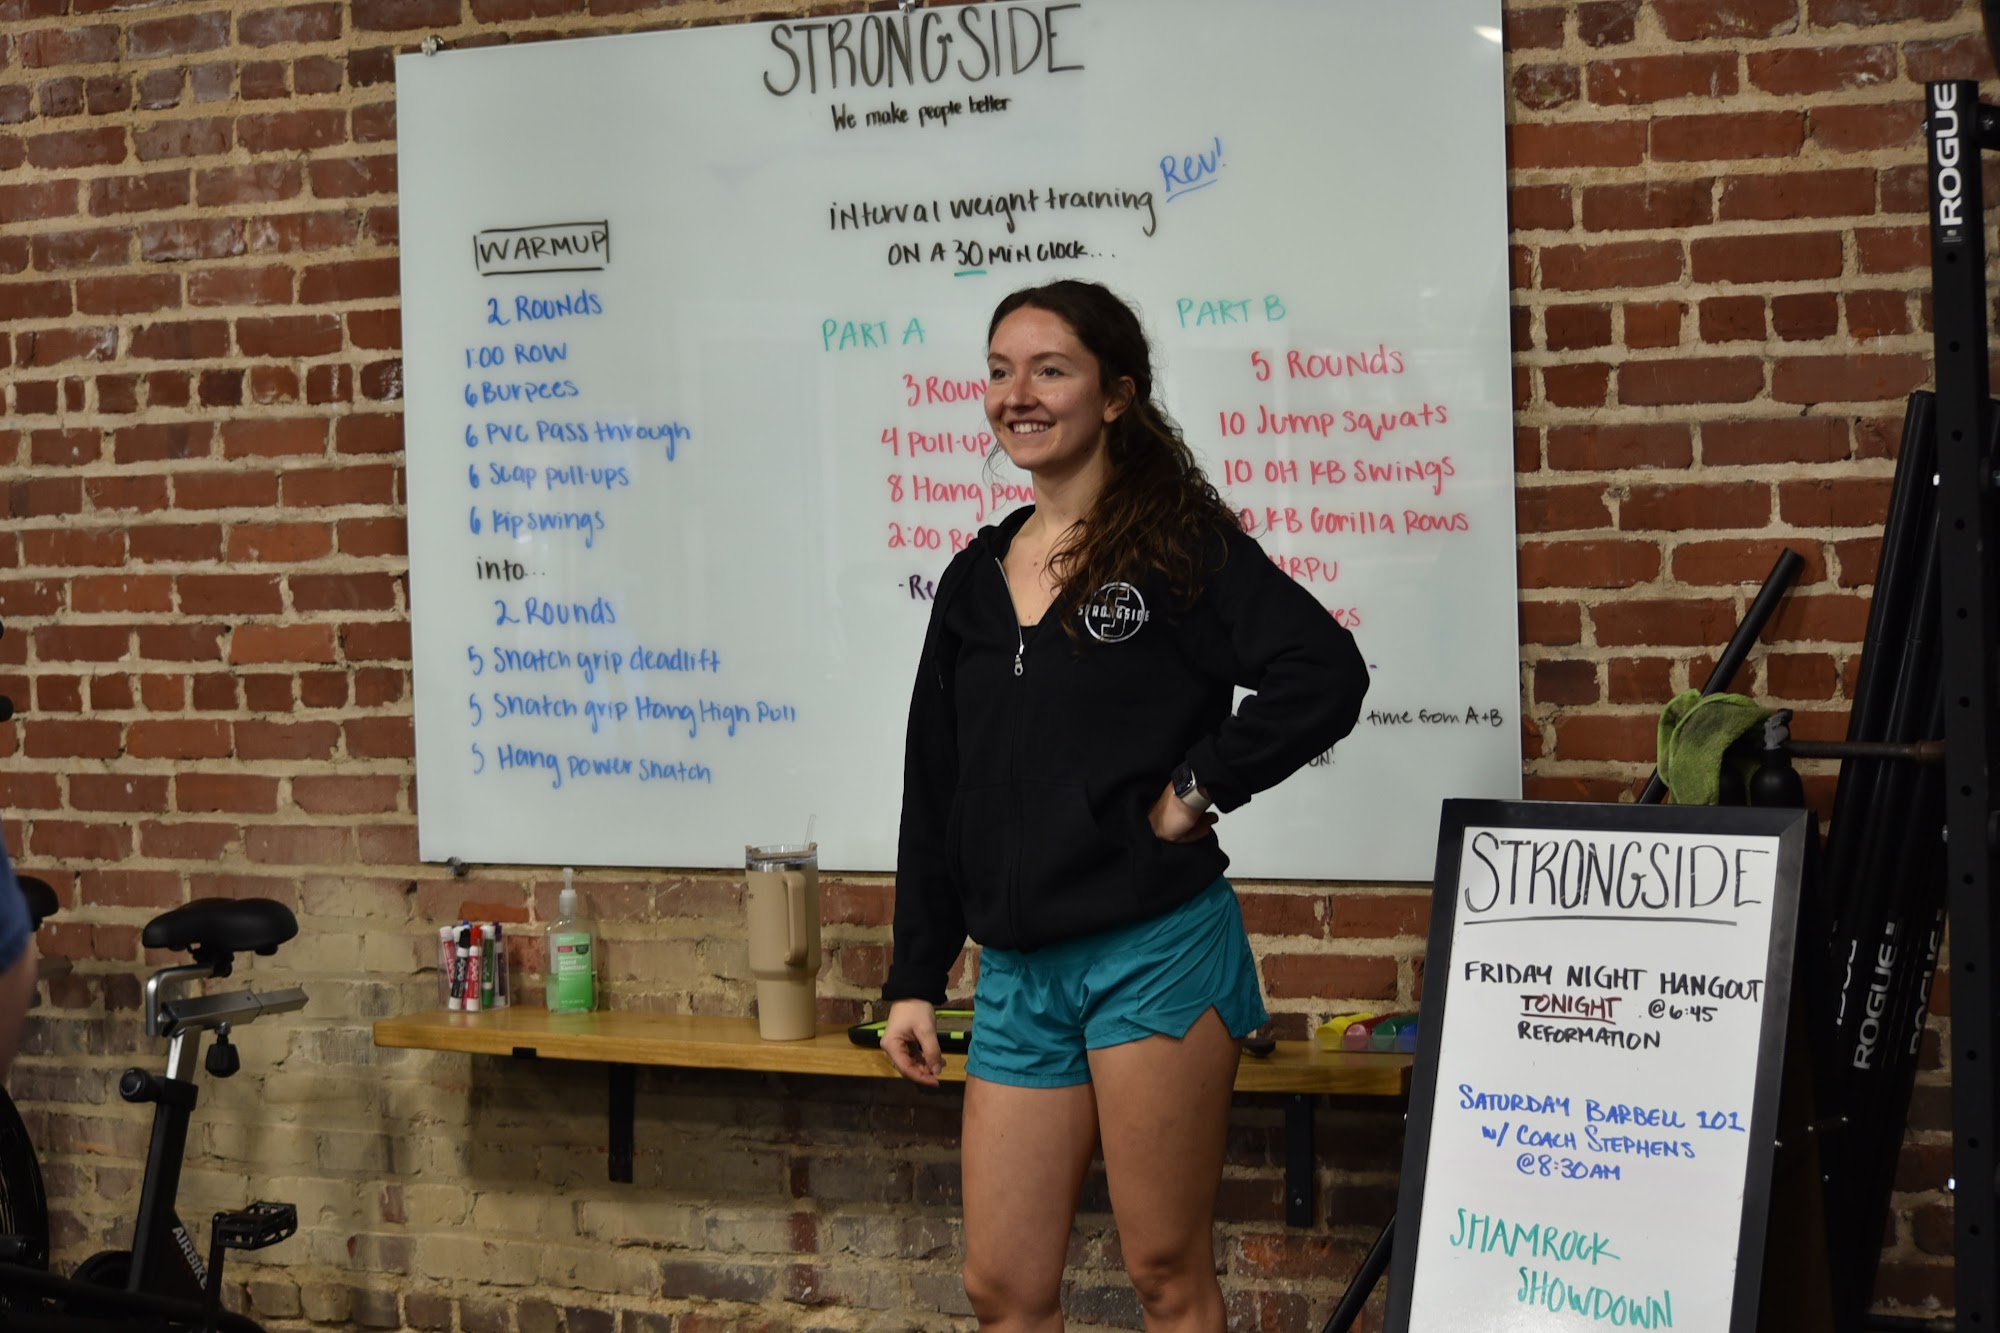 STRONGSIDE
We make people better
interval weight training Rev!
ON A 30 MIN CLOCK...
WARMUP
2 ROUNDS
1:00 ROW
6 Burpees
6 PVC Pass through
6 Scap pull-ups
6 Kip swings
into...
2 Rounds
5 Snatch grip deadlift
5 Snatch grip Hang High Pull
5 Hang power snatch
PART A
3 ROUN
4 Pull-up
8 Hang pow
2:00 Ro
-Re
PART B
5 ROUNDS
10 Jump squats
10 OH KB swings
KB Gorilla Rows
HRPU
time from A+B
ON!
STRONGSIDE
ROGUE
STRONGSIDE
FRIDAY NIGHT HANGOUT
TONIGHT @6:45
REFORMATION
SATURDAY BARBELL 101
w/ COACH STEPHENS
@8:30AM
SHAMROCK
SHOWDOWN
ROGUE
ROGUE
AIRBIKE